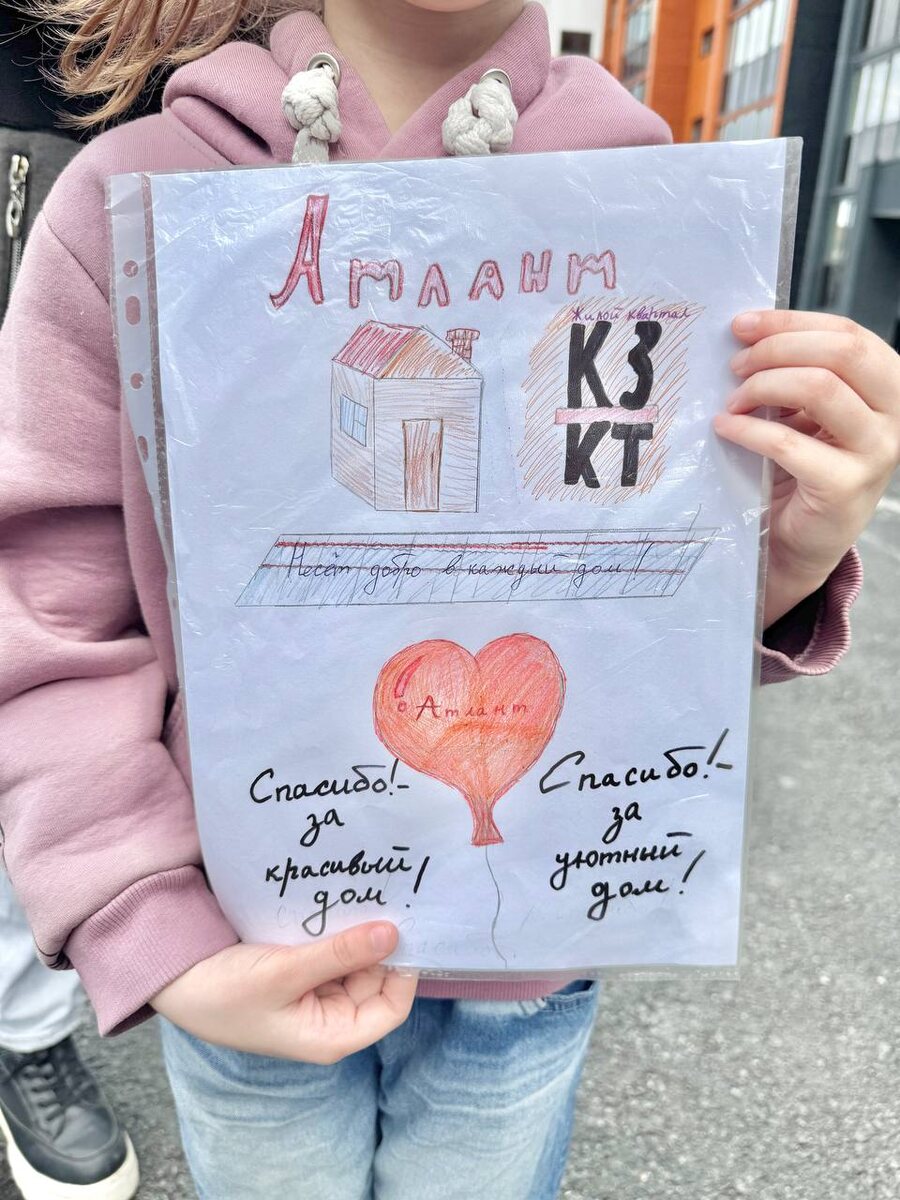 Атлант
Жилой квартал
КЗ
КТ
Несёт добро в каждый дом!
Атлант
Спасибо!-
за
красивый
дом!
Спасибо!-
за
уютный
дом!